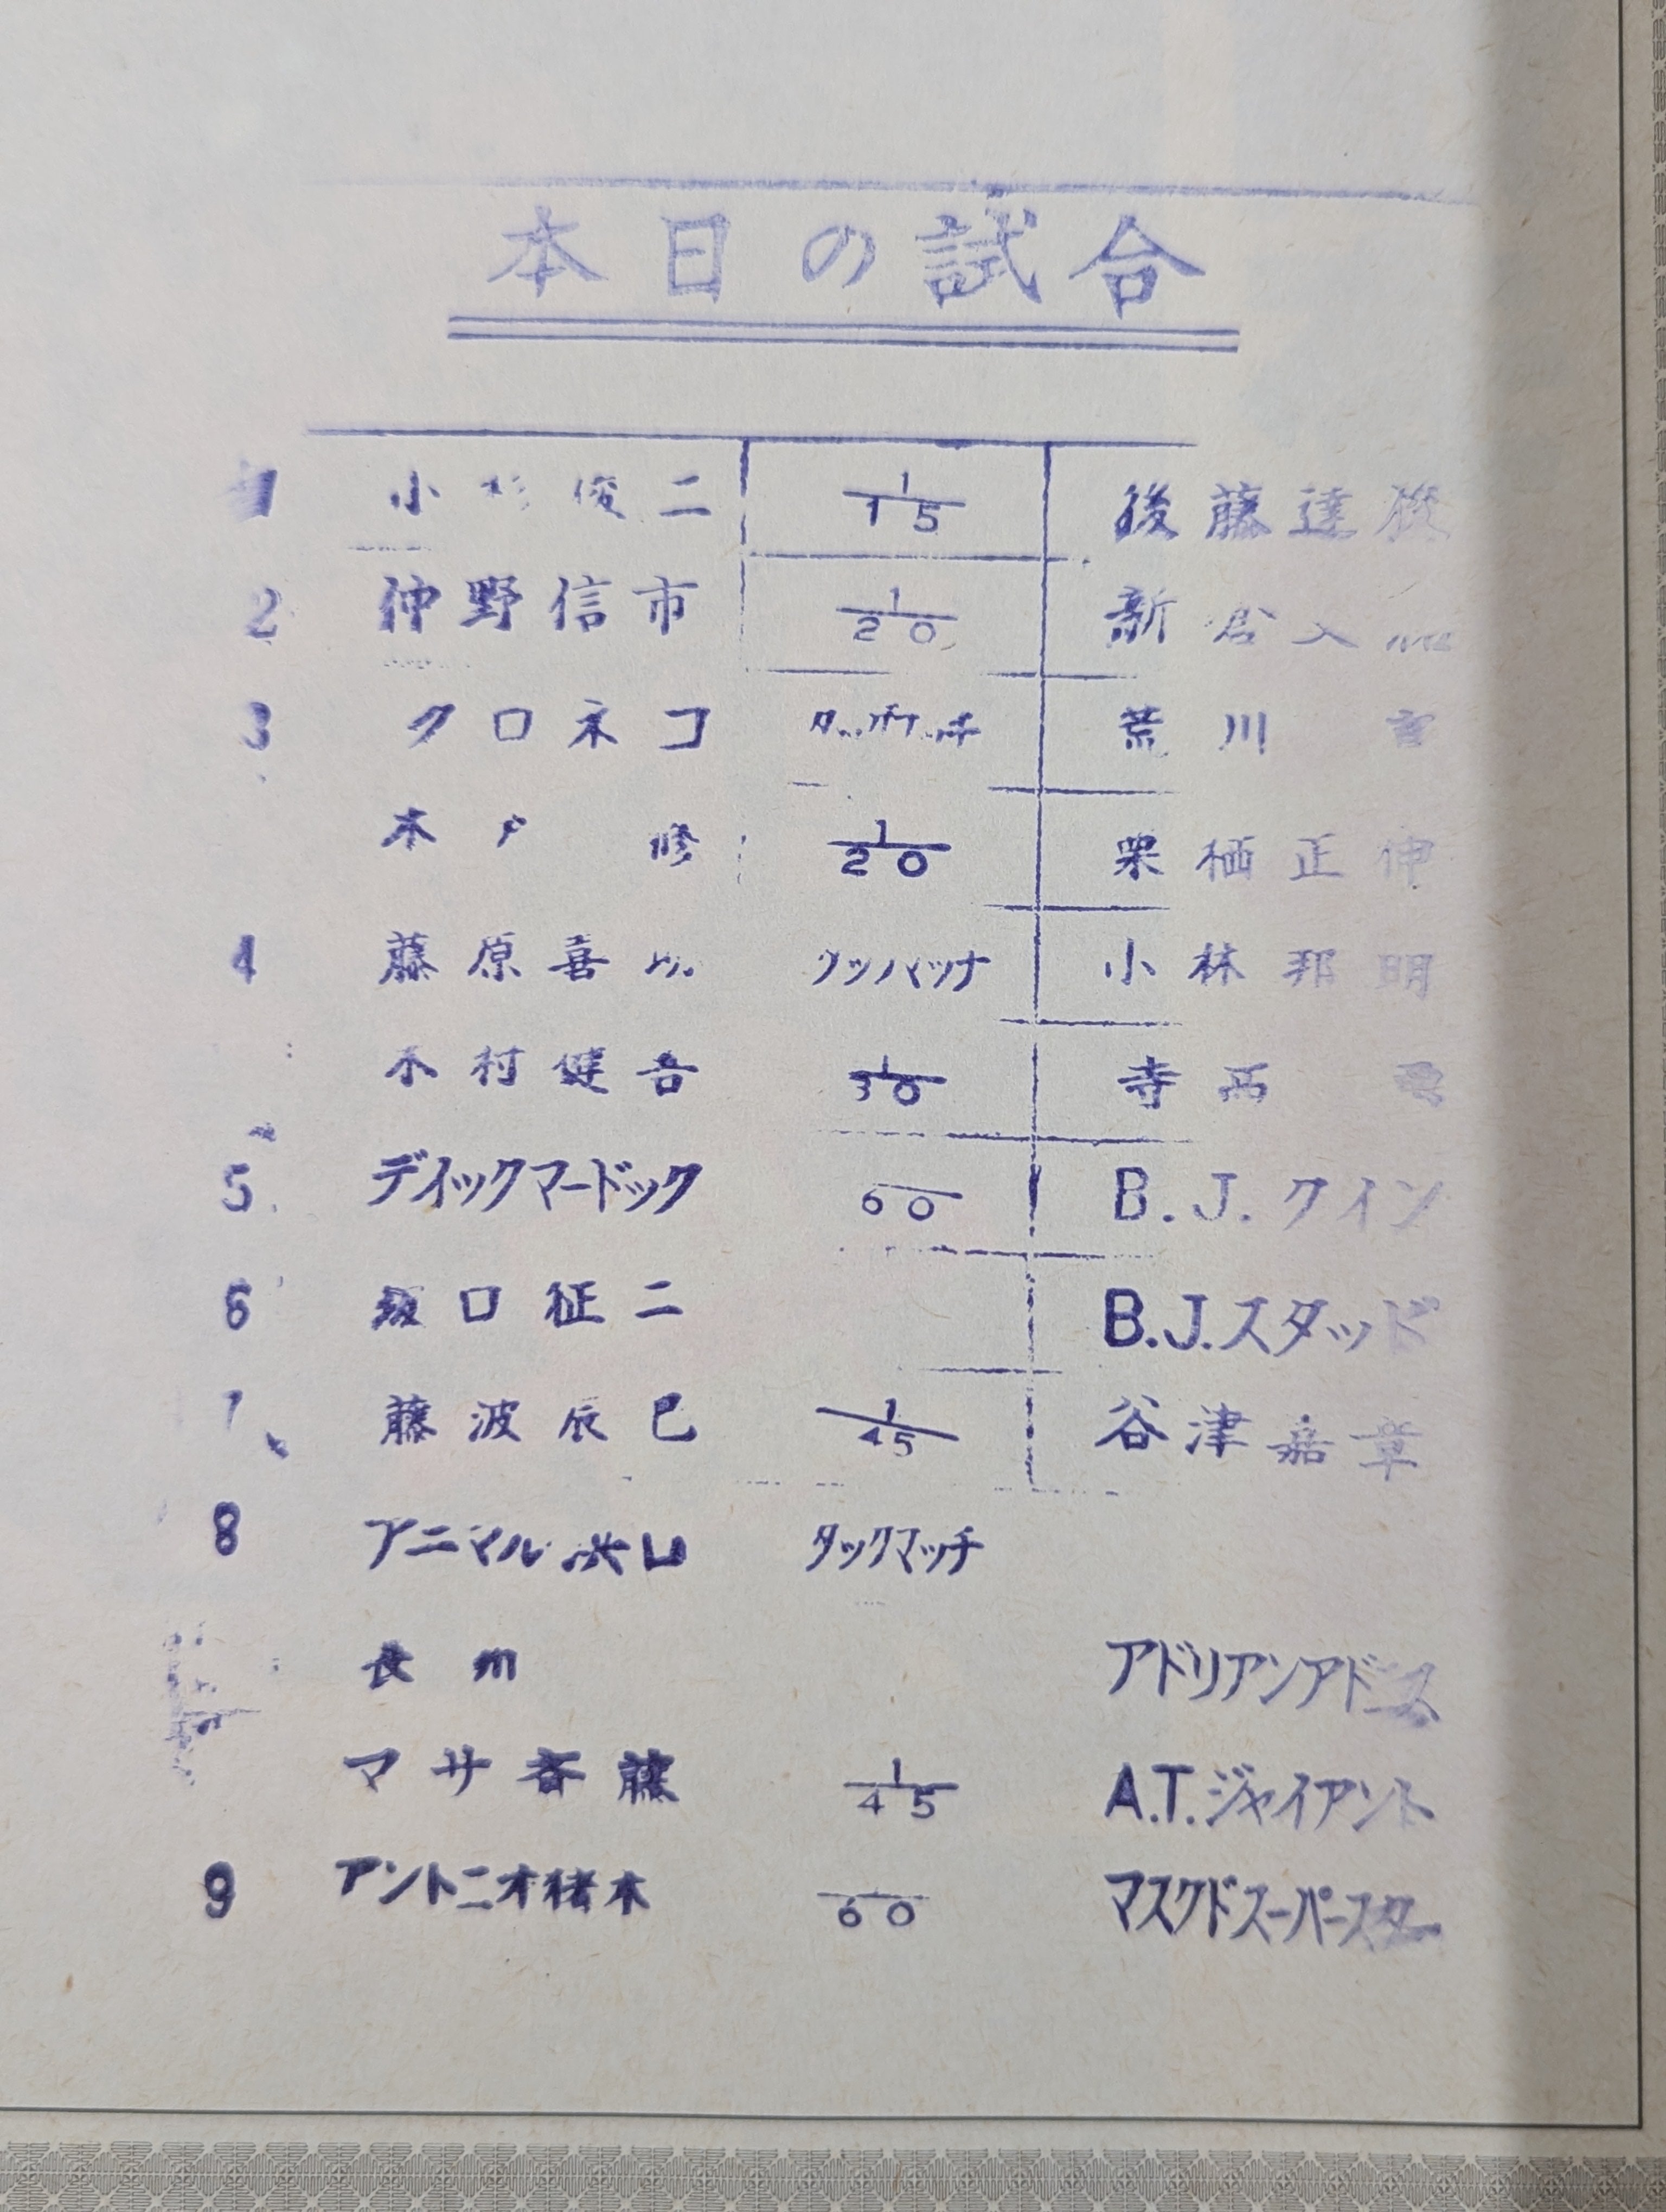 本日の試合
1 小杉俊二 1/15 後藤達俊
2 仲野信市 1/20 新倉
3 クロネコ 荒川
木戸修 1/20 栗栖正伸
4 藤原喜 小林邦明
木村健吾 1/30 寺西
5 デイックマードック 60 B.J.クイン
6 坂口征二 B.J.スタッド
7 藤波辰巳 1/45 谷津嘉章
8 アニマル タッグマッチ
長州 アドリアンアドニス
マサ斎藤 1/45 A.T.ジャイアント
9 アントニオ猪木 60 マスクドスーパースター